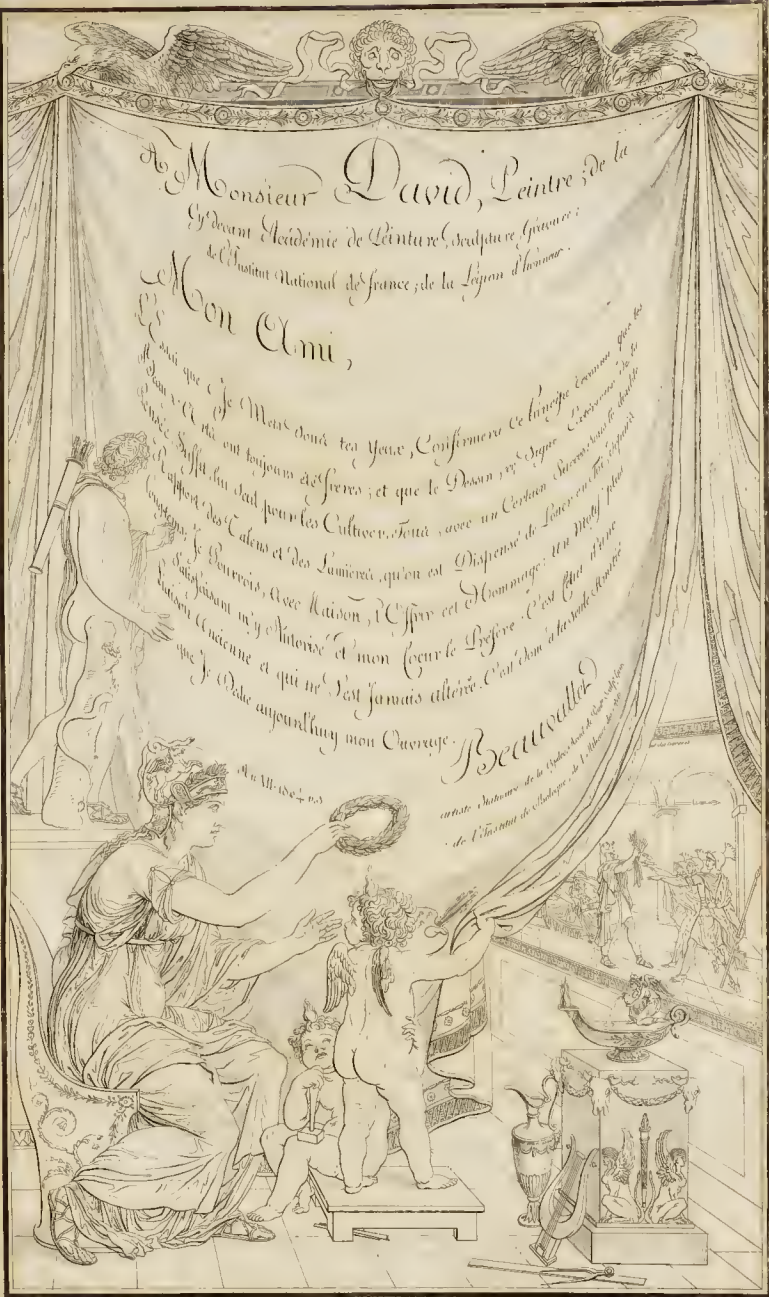 A Monsieur David, Peintre ; de la
Cy-devant Académie de Peinture, Sculpture, Gravure ;
de l'Institut National de france ; de la Légion d'honneur.
Mon Ami,
L'Essai que Je Mets sous tes yeux, Confirmera ce Principe connu que les
Beaux Arts ont toujours été freres ; et que le Dessin, ce Signe Extérieur de la
Pensée, Suffit lui seul pour les Cultiver tous, avec un Certain Succès. Sous le double
Rapport des Talens et des Lumieres, qu'on est Dispensé de Louer en toi, depuis
longtems, Je Pourrois, avec Raison, t'Offrir cet Hommage : un Motif plus
Satisfaisant m'y Autorise et mon Coeur le Préfere : C'est Celui d'une
Liaison Ancienne et qui ne s'est Jamais altérée. C'est donc à la seule Amitié
que Je Dédie aujourd'huy mon Ouvrage.
Beauvallet
An XII - 1804 v.s.
artiste Statuaire de la
de l'Institut de Bologne, de l'Athenée